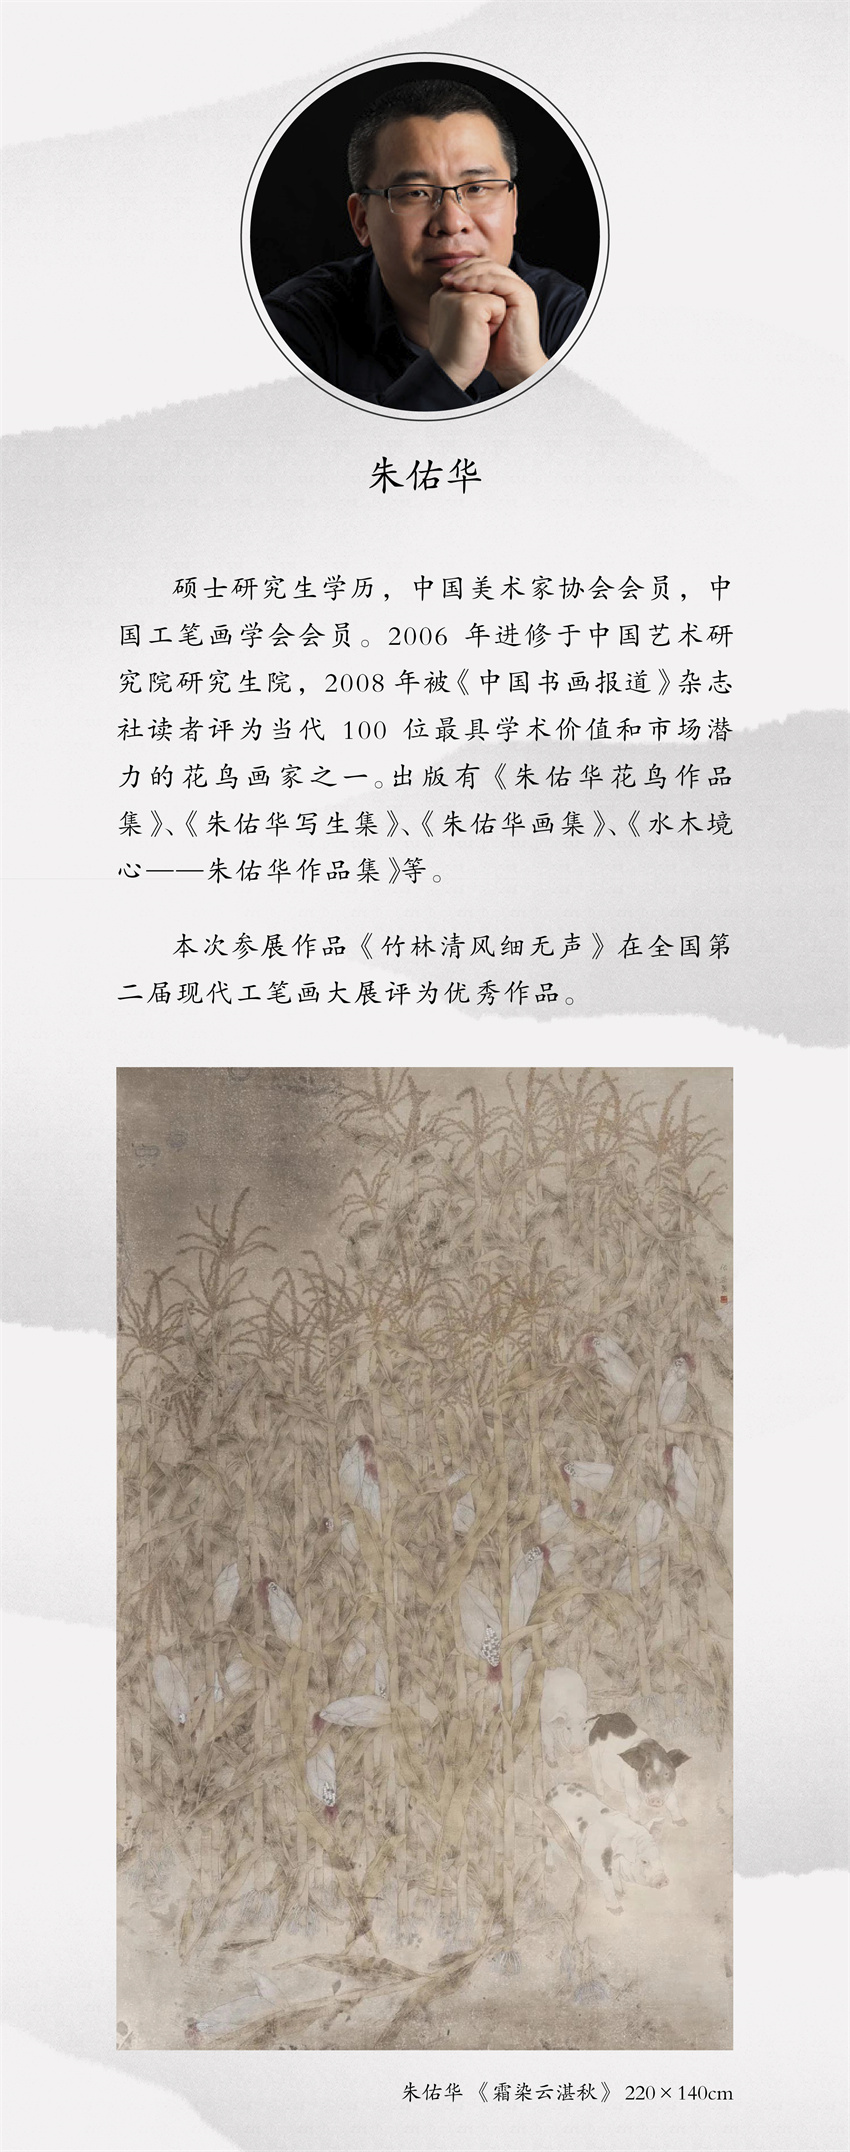 朱佑华
硕士研究生学历，中国美术家协会会员，中
国工笔画学会会员。2006 年进修于中国艺术研
究院研究生院，2008 年被《中国书画报道》杂志
社读者评为当代 100 位最具学术价值和市场潜
力的花鸟画家之一。出版有《朱佑华花鸟作品
集》、《朱佑华写生集》、《朱佑华画集》、《水木境
心——朱佑华作品集》等。
本次参展作品《竹林清风细无声》在全国第
二届现代工笔画大展评为优秀作品。
朱佑华《霜染云湛秋》220×140cm